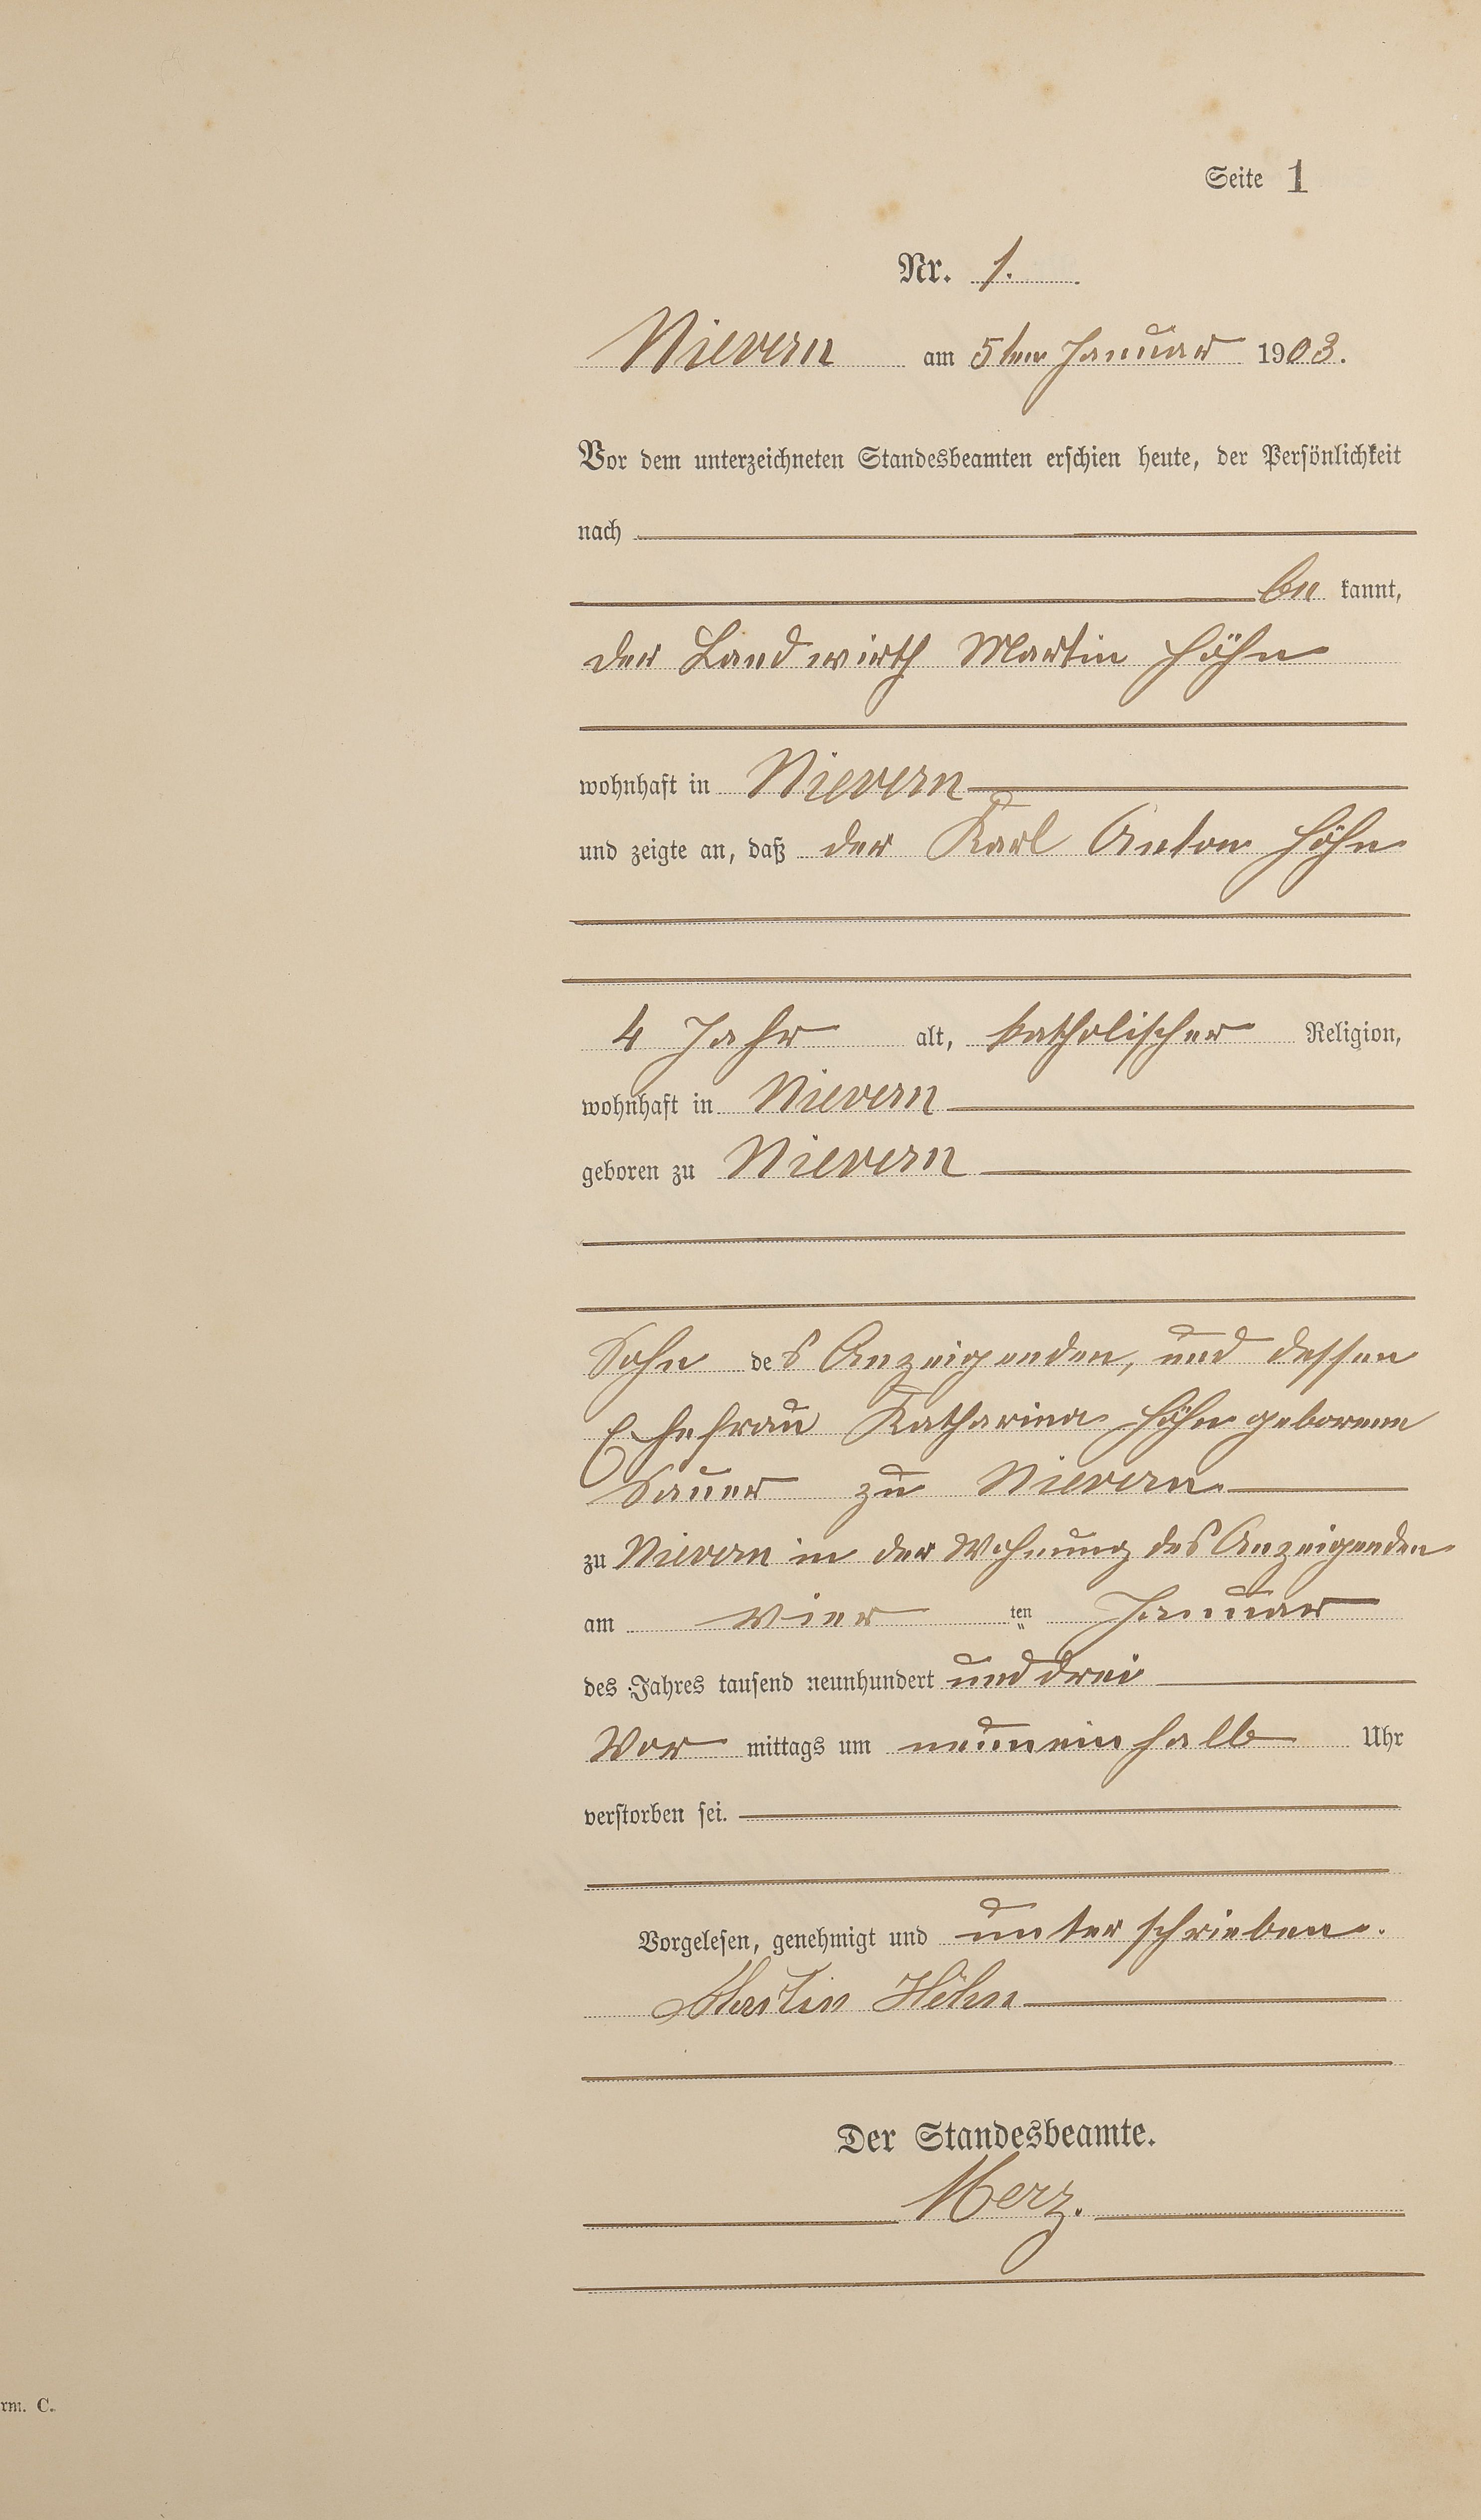 Seite 1
Nr. 1.
Nievern am 5ten Januar 1903.
Vor dem unterzeichneten Standesbeamten erschien heute, der Persönlichkeit
nach
be kannt,
der Landwirth Martin Höhn
wohnhaft in Nievern
und zeigte an, daß der Karl Anton Höhn
4 Jahr alt, katholischer Religion,
wohnhaft in Nievern
geboren zu Nievern
Sohn des Anzeigenden, und dessen
Ehefrau Katharina Höhn geborene
Sauer zu Nievern
zu Nievern in der Wohnung des Anzeigenden
am vier ten Januar
des Jahres tausend neunhundert und drei
Vor mittags um neuneinhalb Uhr
verstorben sei.
Vorgelesen, genehmigt und unterschrieben.
Martin Höhn
Der Standesbeamte.
Merz.
rm. C.